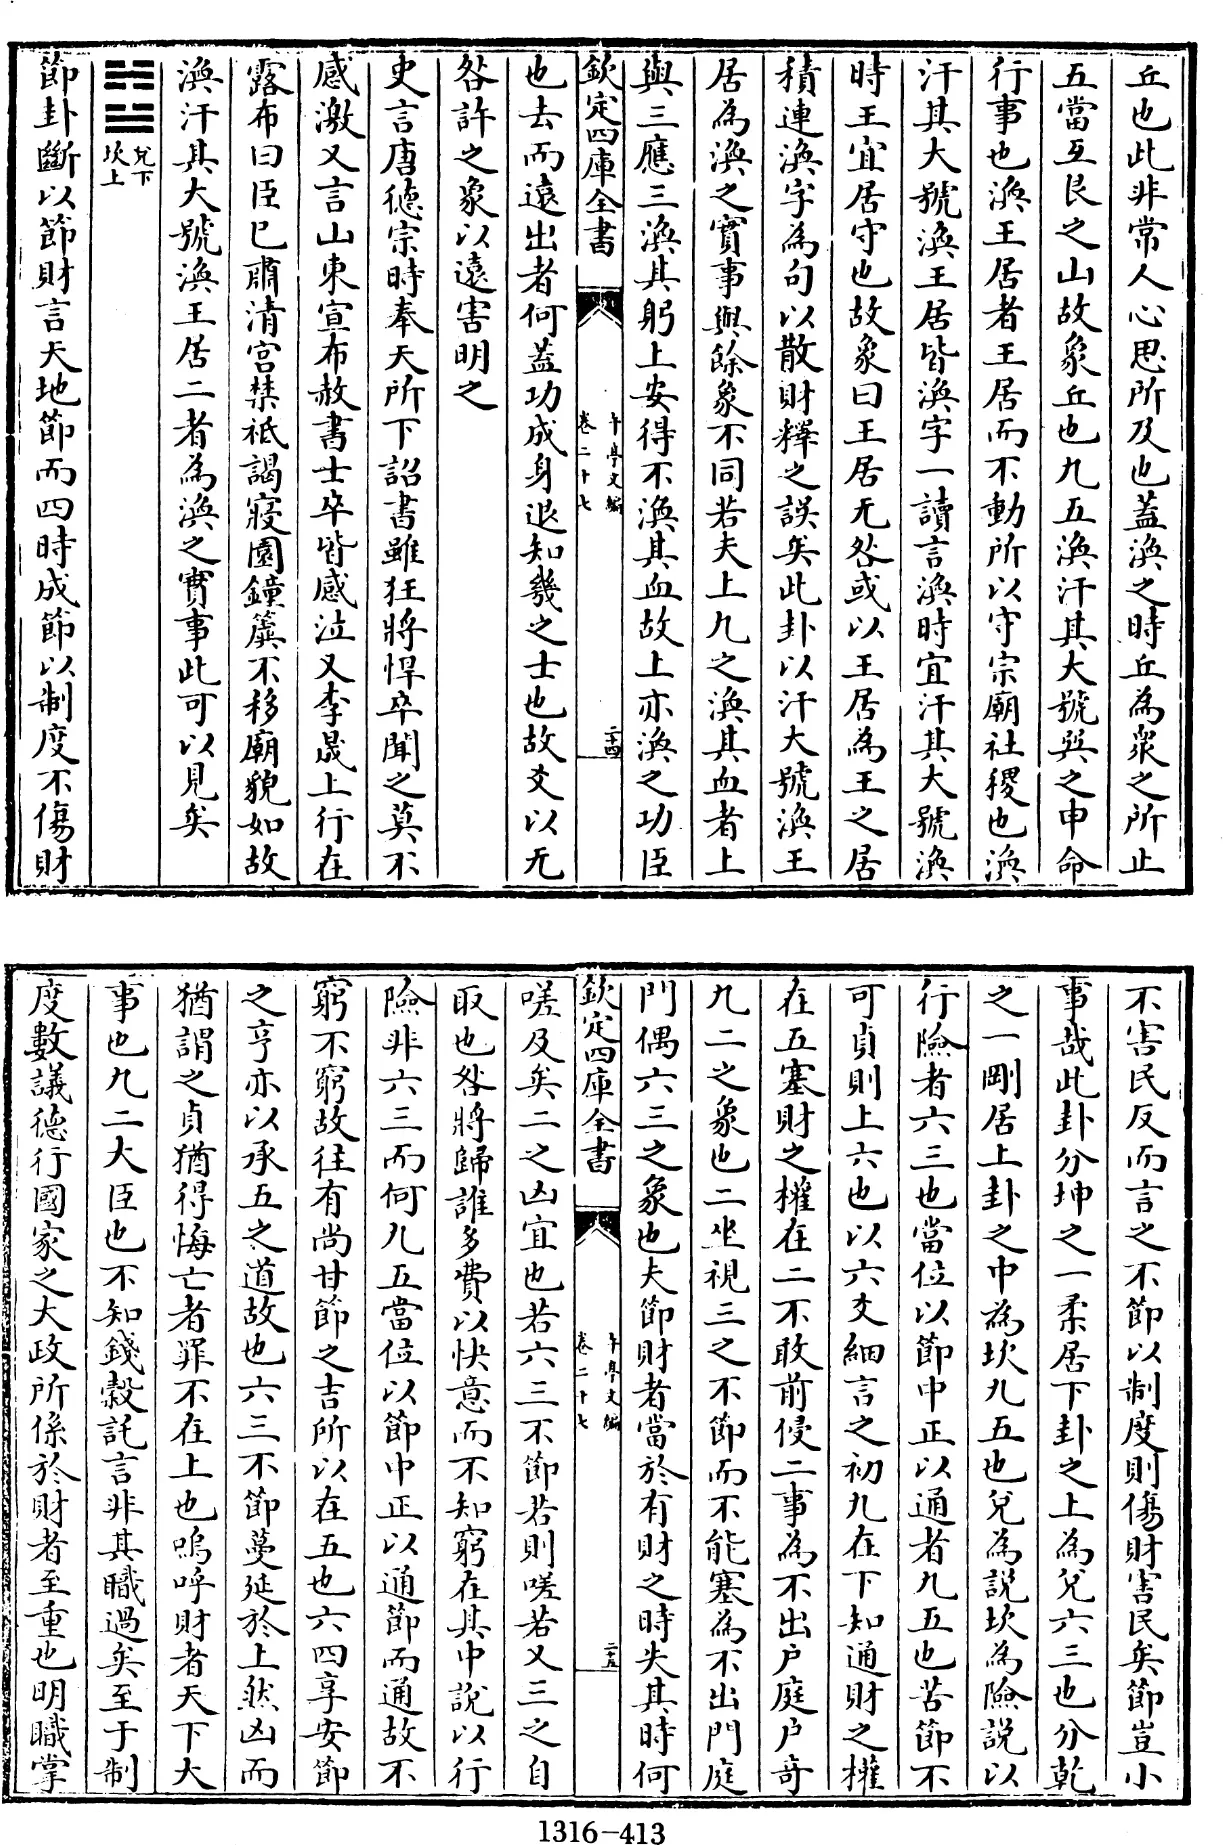 丘也此非常人心思所及也蓋渙之時丘為衆之所止
五當互艮之山故象丘也九五渙汗其大號巽之申命
行事也渙王居者王居而不動所以守宗廟社稷也渙
汗其大號渙王居皆渙字一讀言渙時宜汗其大號渙
時王宜居守也故象曰王居无咎或以王居為王之居
積連渙字為句以散財釋之誤矣此卦以汗大號渙王
居為渙之實事與餘象不同若夫上九之渙其血者上
與三應三渙其躬上安得不渙其血故上亦渙之功臣
欽定四庫全書
午亭文編
卷二十七
二十四
也去而遠出者何蓋功成身退知幾之士也故爻以无
咎許之象以遠害明之
史言唐德宗時奉天所下詔書雖狂將悍卒聞之莫不
感激又言山東宣布赦書士卒皆感泣又李晟上行在
露布曰臣已肅清宮禁祗謁寢園鐘簴不移廟貌如故
渙汗其大號渙王居二者為渙之實事此可以見矣
䷻兌下
坎上
節卦斷以節財言天地節而四時成節以制度不傷財
不害民反而言之不節以制度則傷財害民矣節豈小
事哉此卦分坤之一柔居下卦之上為兌六三也分乾
之一剛居上卦之中為坎九五也兌為說坎為險說以
行險者六三也當位以節中正以通者九五也苦節不
可貞則上六也以六爻細言之初九在下知通財之權
在五塞財之權在二不敢前侵二事為不出户庭户奇
九二之象也二坐視三之不節而不能塞為不出門庭
門偶六三之象也夫節財者當於有財之時失其時何
欽定四庫全書
午亭文編
卷二十七
二十五
嗟及矣二之凶宜也若六三不節若則嗟若又三之自
取也咎將歸誰多費以快意而不知窮在其中說以行
險非六三而何九五當位以節中正以通節而通故不
窮不窮故往有尚甘節之吉所以在五也六四享安節
之亨亦以承五之道故也六三不節蔓延於上然凶而
猶謂之貞猶得悔亡者罪不在上也嗚呼財者天下大
事也九二大臣也不知錢穀託言非其職過矣至于制
度數議德行國家之大政所係於財者至重也明職掌
1316-413